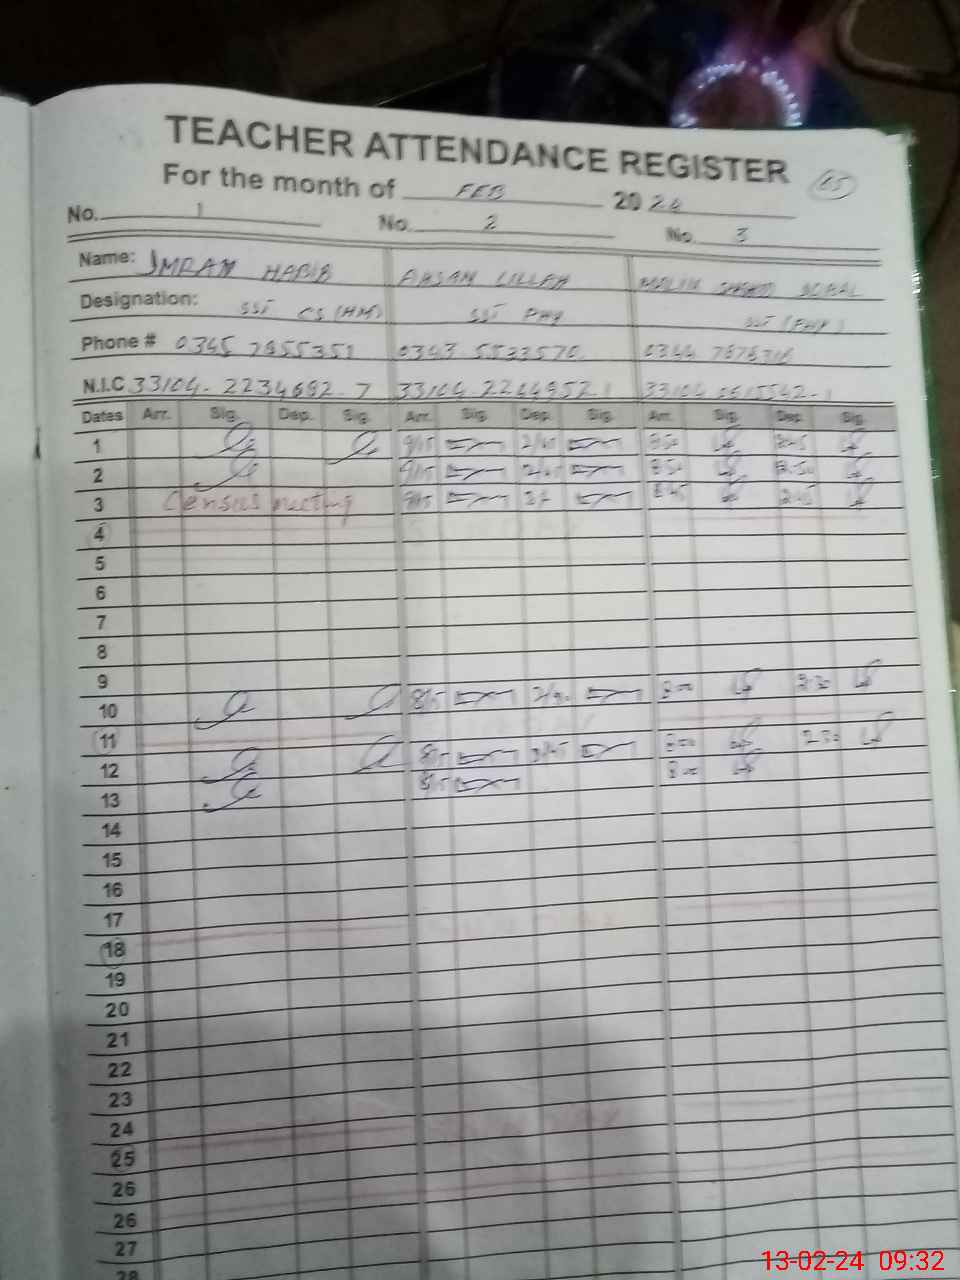 TEACHER ATTENDANCE REGISTER
For the month of FEB 2024
65
No. 1 No. 2 No. 3
Name: IMRAN HABIB AHSAN LILLAH
Designation: SST CS (HM) SST PHY SST (PHY)
Phone # 0345 7655351 0343 5533570
N.I.C 33104-2234692-7
Dates Arr. Sig. Dep. Sig. Arr. Sig. Dep. Sig. Arr. Sig. Dep. Sig.
1 9/15 2/45 8:50
2 9/15 2/45 8:50
3 Census meeting 9/15 8:45 2:45
4
5
6
7
8
9
10 8/15 2/30 8:00 2:30
11
12 8/15 8:00 2:30
13 8/15 8:00
14
15
16
17
18
19
20
21
22
23
24
25
26
26
27
28
13-02-24 09:32